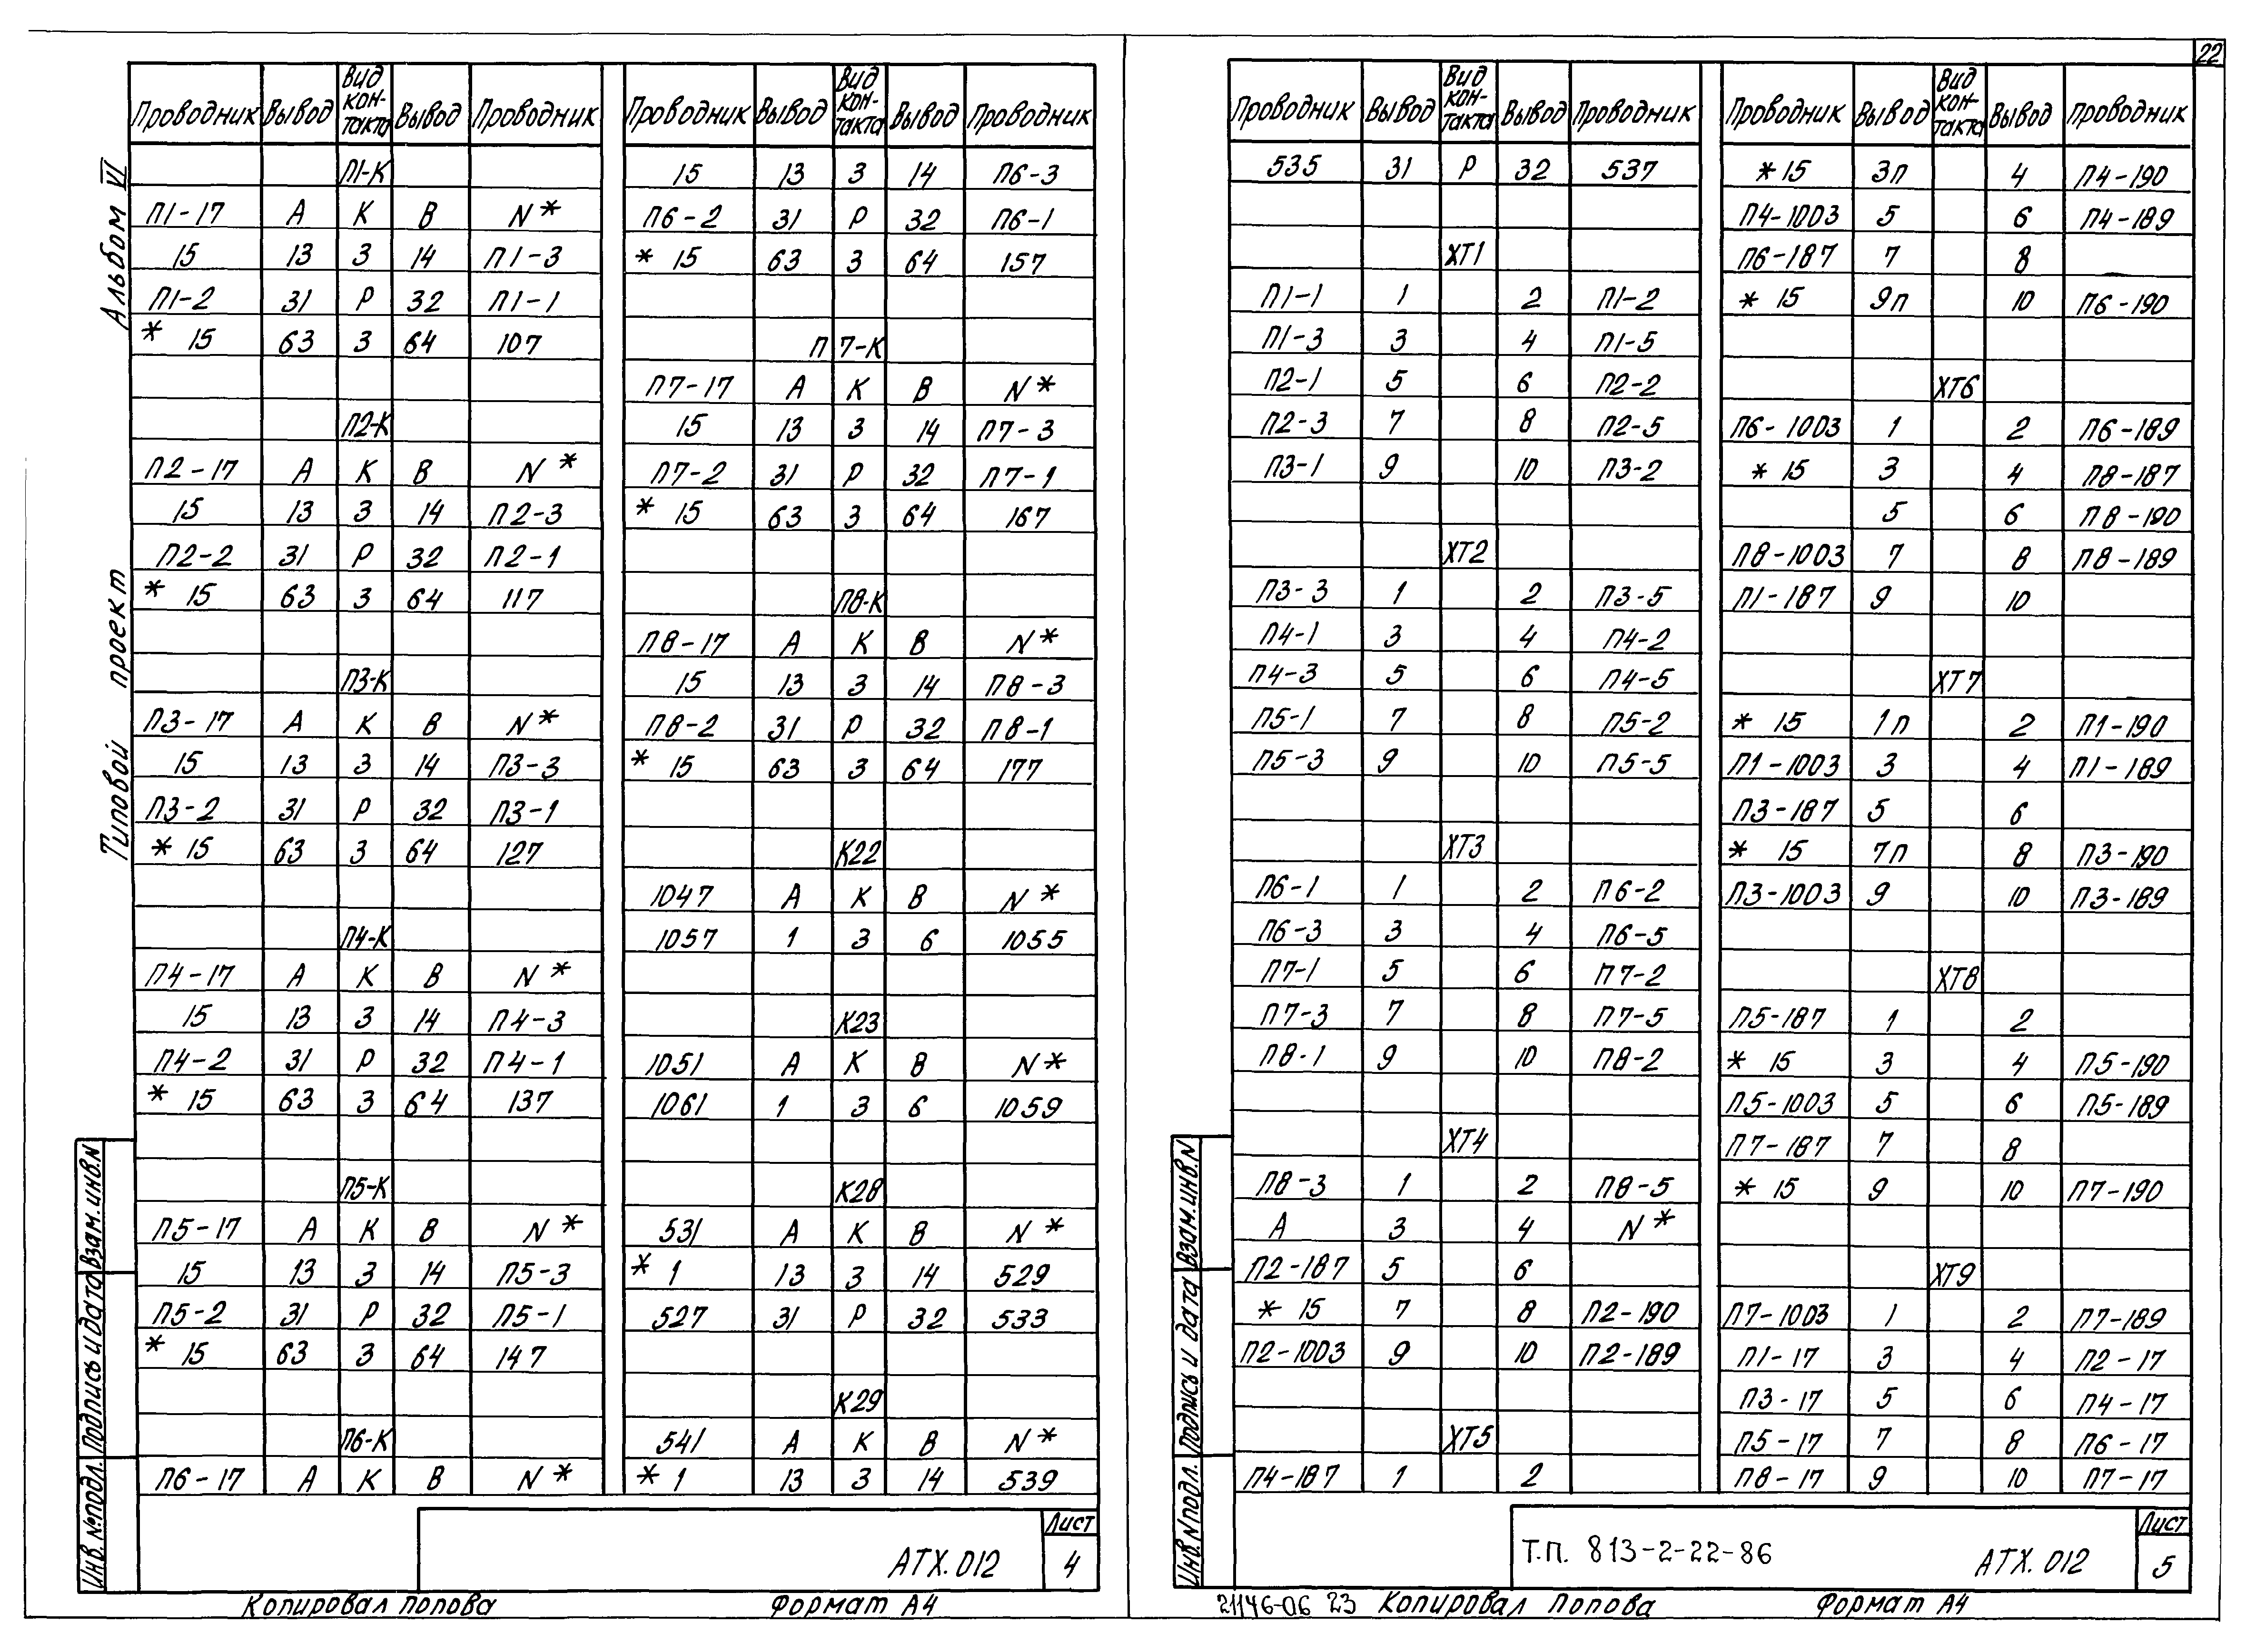 22
Альбом VI
Типовой проект
Проводник Вывод Вид кон-такта Вывод Проводник
П1-К
П1-17 А К В N*
15 13 З 14 П1-3
П1-2 31 Р 32 П1-1
* 15 63 З 64 107
П2-К
П2-17 А К В N*
15 13 З 14 П2-3
П2-2 31 Р 32 П2-1
* 15 63 З 64 117
П3-К
П3-17 А К В N*
15 13 З 14 П3-3
П3-2 31 Р 32 П3-1
* 15 63 З 64 127
П4-К
П4-17 А К В N*
15 13 З 14 П4-3
П4-2 31 Р 32 П4-1
* 15 63 З 64 137
П5-К
П5-17 А К В N*
15 13 З 14 П5-3
П5-2 31 Р 32 П5-1
* 15 63 З 64 147
П6-К
П6-17 А К В N*
Проводник Вывод Вид кон-такта Вывод Проводник
15 13 З 14 П6-3
П6-2 31 Р 32 П6-1
* 15 63 З 64 157
П7-К
П7-17 А К В N*
15 13 З 14 П7-3
П7-2 31 Р 32 П7-1
* 15 63 З 64 167
П8-К
П8-17 А К В N*
15 13 З 14 П8-3
П8-2 31 Р 32 П8-1
* 15 63 З 64 177
К22
1047 А К В N*
1057 1 З 6 1055
К23
1051 А К В N*
1061 1 З 6 1059
К28
531 А К В N*
* 1 13 З 14 529
527 31 Р 32 533
К29
541 А К В N*
* 1 13 З 14 539
Инв. №подл. Подпись и дата Взам.инв.N
АТХ.012
Лист
4
Копировал Попова Формат А4
Проводник Вывод Вид кон-такта Вывод Проводник
535 31 Р 32 537
ХТ1
П1-1 1 2 П1-2
П1-3 3 4 П1-5
П2-1 5 6 П2-2
П2-3 7 8 П2-5
П3-1 9 10 П3-2
ХТ2
П3-3 1 2 П3-5
П4-1 3 4 П4-2
П4-3 5 6 П4-5
П5-1 7 8 П5-2
П5-3 9 10 П5-5
ХТ3
П6-1 1 2 П6-2
П6-3 3 4 П6-5
П7-1 5 6 П7-2
П7-3 7 8 П7-5
П8-1 9 10 П8-2
ХТ4
П8-3 1 2 П8-5
А 3 4 N*
П2-187 5 6
* 15 7 8 П2-190
П2-1003 9 10 П2-189
ХТ5
П4-187 1 2
Проводник Вывод Вид кон-такта Вывод Проводник
* 15 3п 4 П4-190
П4-1003 5 6 П4-189
П6-187 7 8
* 15 9п 10 П6-190
ХТ6
П6-1003 1 2 П6-189
* 15 3 4 П8-187
5 6 П8-190
П8-1003 7 8 П8-189
П1-187 9 10
ХТ7
* 15 1п 2 П1-190
П1-1003 3 4 П1-189
П3-187 5 6
* 15 7п 8 П3-190
П3-1003 9 10 П3-189
ХТ8
П5-187 1 2
* 15 3 4 П5-190
П5-1003 5 6 П5-189
П7-187 7 8
* 15 9 10 П7-190
ХТ9
П7-1003 1 2 П7-189
П1-17 3 4 П2-17
П3-17 5 6 П4-17
П5-17 7 8 П6-17
П8-17 9 10 П7-17
Инв. N подл. Подпись и дата Взам.инв.N
Т.П. 813-2-22-86 АТХ.012
Лист
5
21146-06 23 Копировал Попова Формат А4